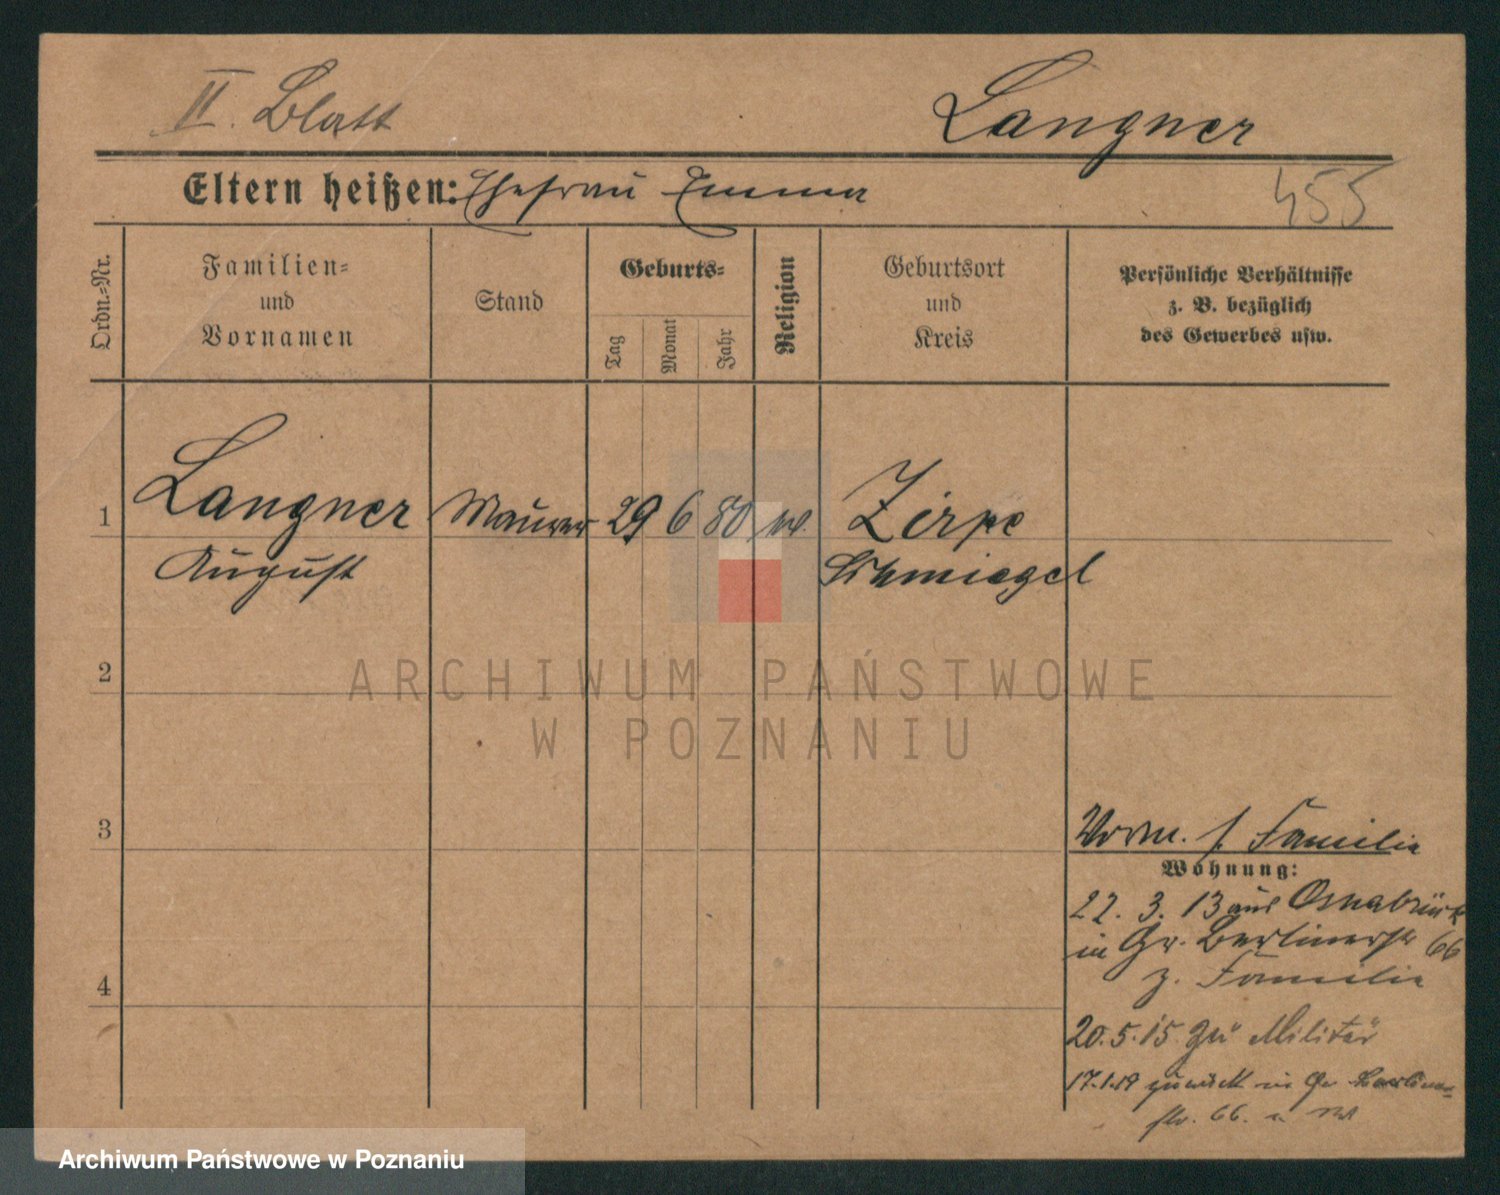 II. Blatt
Langner
Eltern heißen: Ehefrau Emma
455
Ordn.-Nr.
Familien-
und
Vornamen
Stand
Geburts-
Tag
Monat
Jahr
Religion
Geburtsort
und
Kreis
Persönliche Verhältnisse
z. B. bezüglich
des Gewerbes usw.
1
Langner Maurer 29 6 80 Zirpe
August Schmiegel
2
ARCHIWUM PAŃSTWOWE
W POZNANIU
3
Vorm. s. Familie
Wohnung:
22. 3. 13 aus Osnabrück
in Gr. Berlinerstr 66
z. Familie
4
20.5.15. zu Militär
17.1.19 zurück in Gr Berliner-
str. 66.
Archiwum Państwowe w Poznaniu